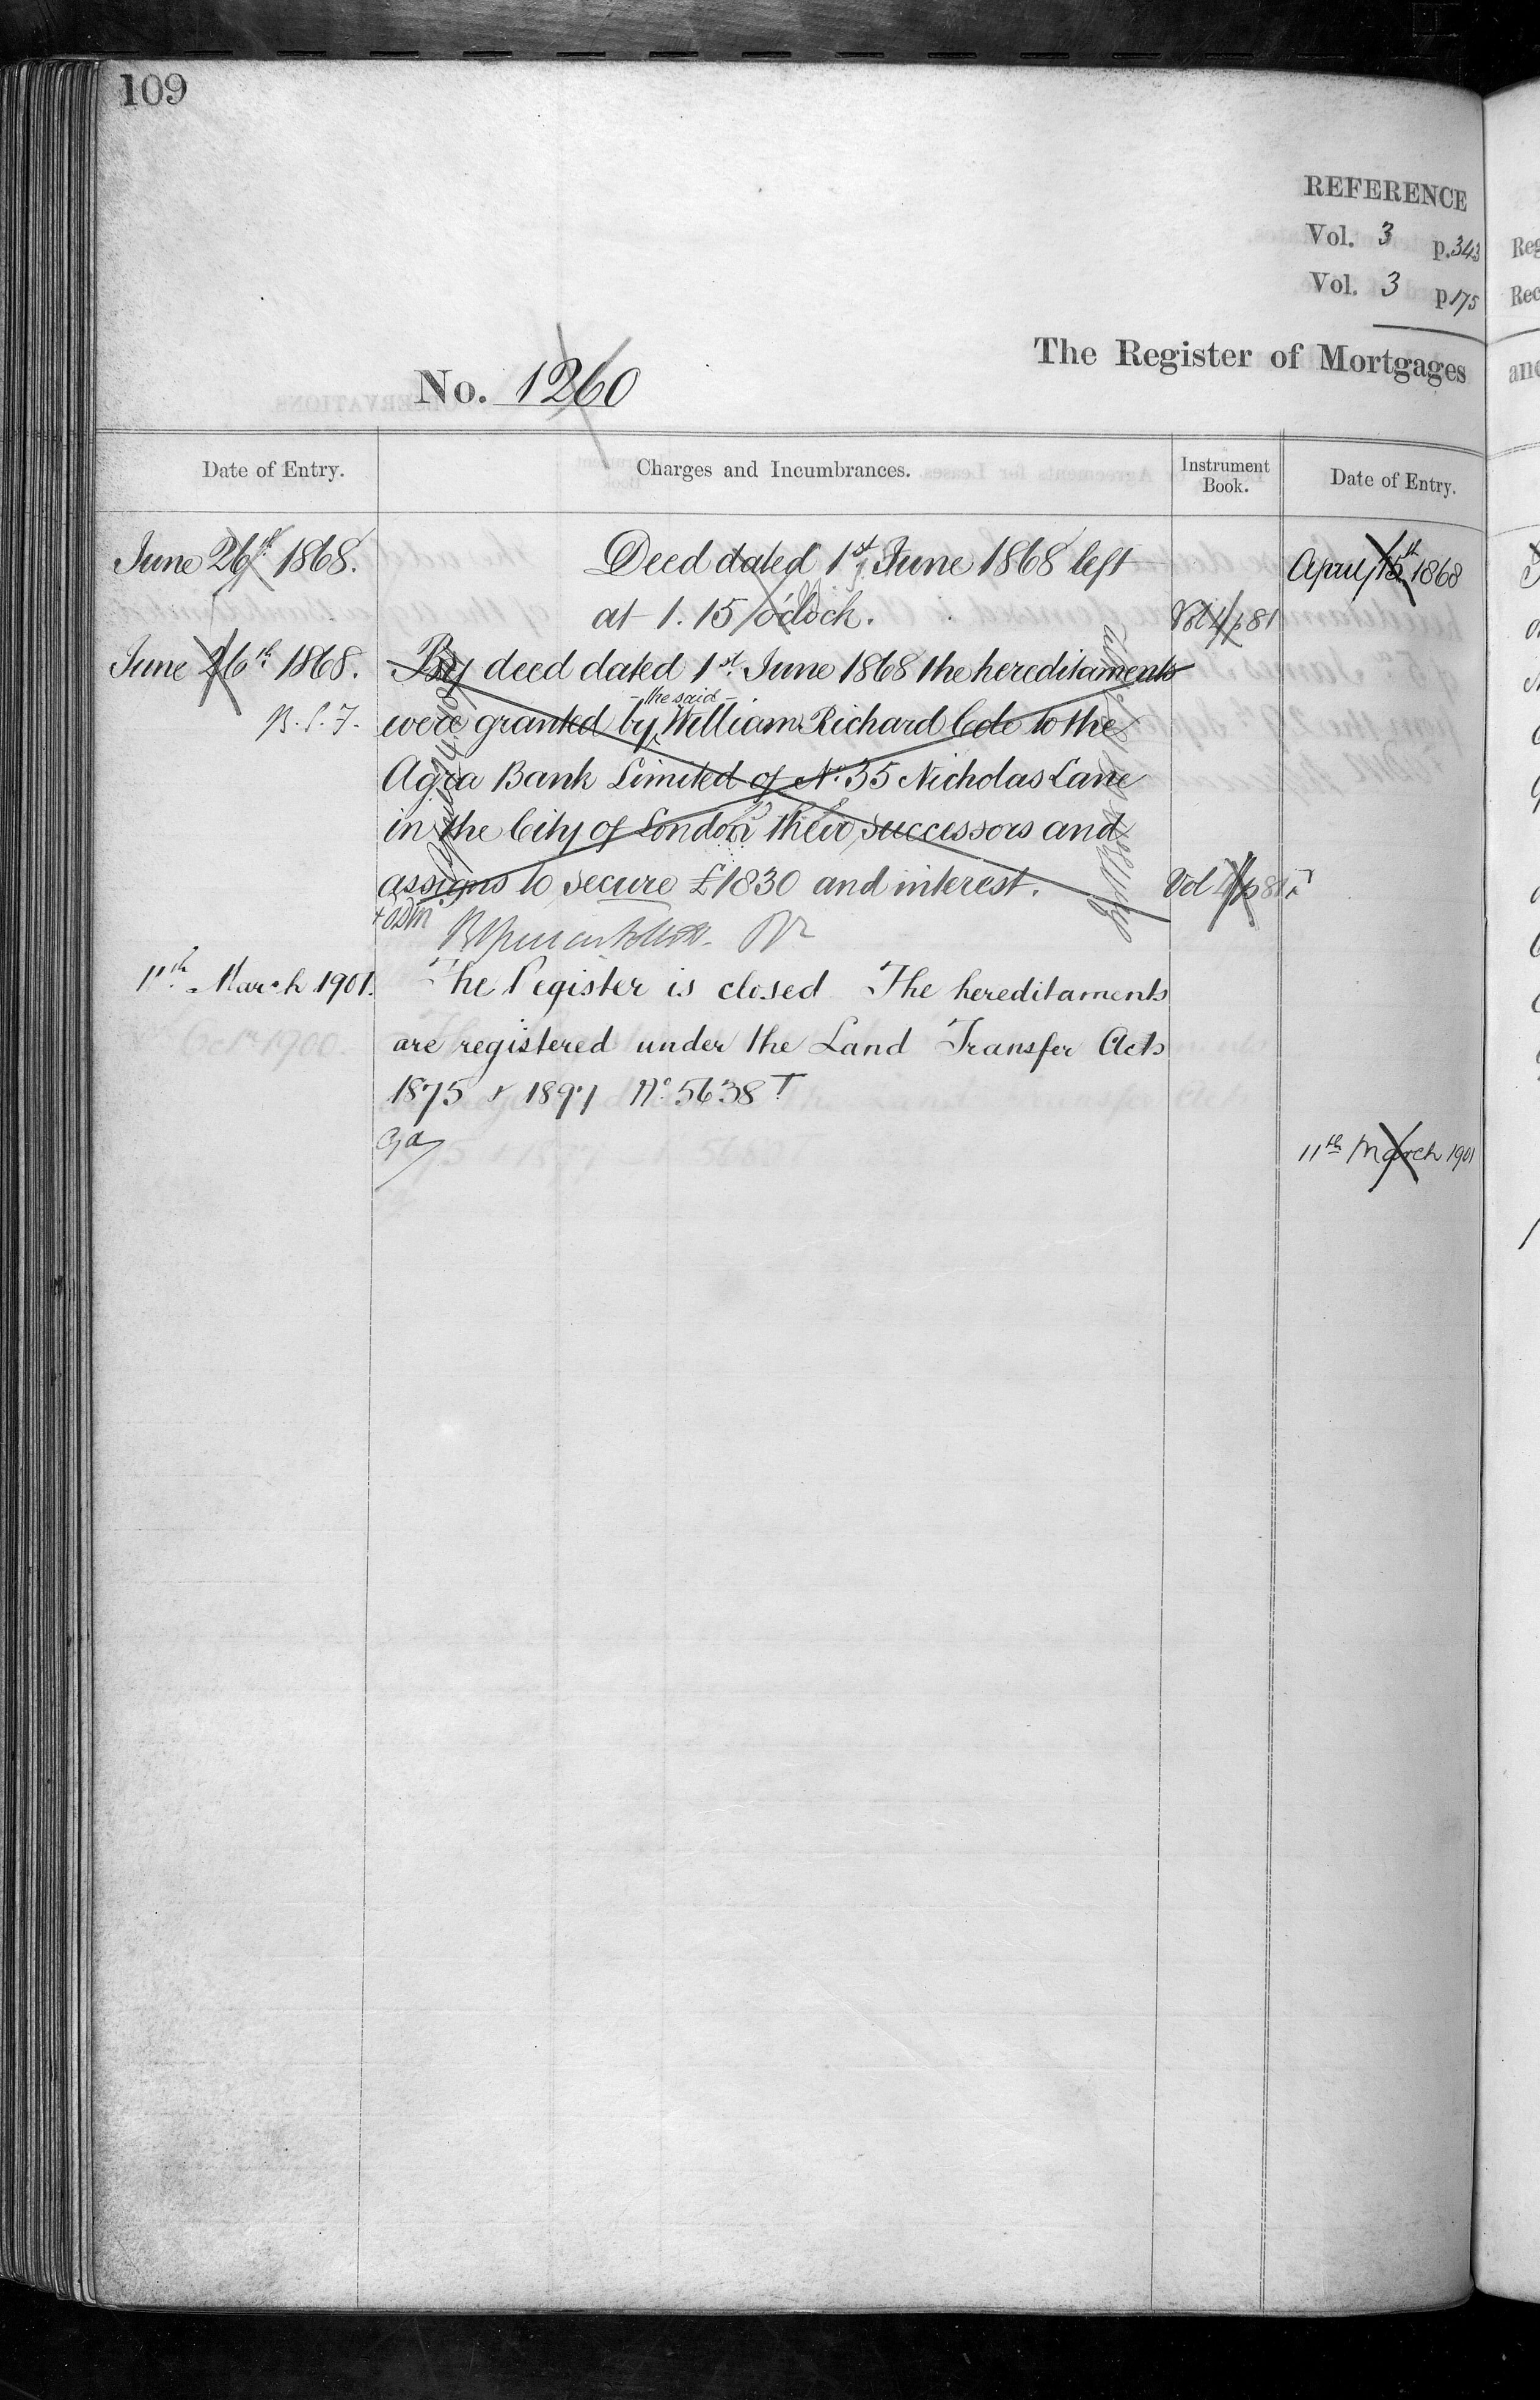 109
REFERENCE
Vol. 3 p.343
Vol. 3 p175
The Register of Mortgages
No. 1260
Date of Entry. Charges and Incumbrances. Instrument Book. Date of Entry.
June 26th 1868. Deed dated 1st June 1868 left April 15th 1868
at 1.15 o'clock. Vol 4 p 81
June 26th 1868. By deed dated 1st June 1868 the hereditaments
the said
B.S.F. were granted by William Richard Cole to the
Agra Bank Limited of No. 35 Nicholas Lane
in the City of London their successors and
assigns to secure £1830 and interest. Vol 4 p 81
11th March 1901. The Register is closed The hereditaments
are registered under the Land Transfer Acts
1875 & 1897 No. 5638 T
11th March 1901